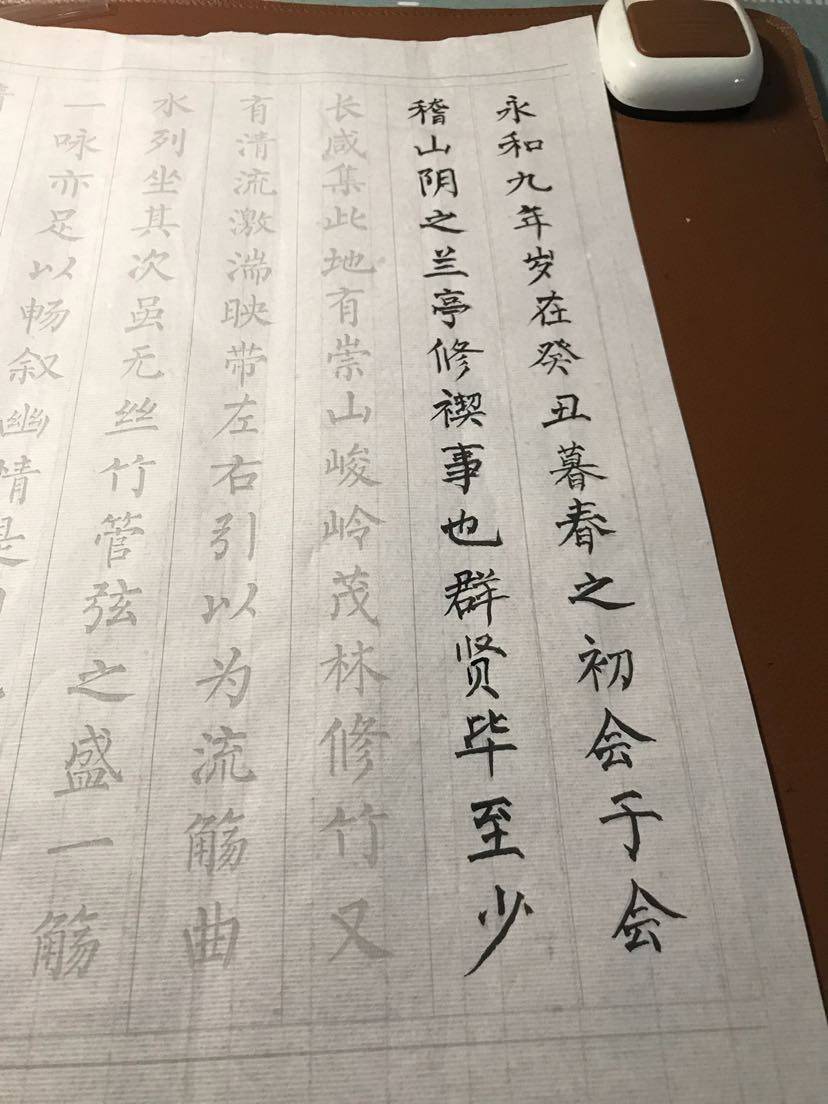 永和九年岁在癸丑暮春之初会于会
稽山阴之兰亭修禊事也群贤毕至少
长咸集此地有崇山峻岭茂林修竹又
有清流激湍映带左右引以为流觞曲
水列坐其次虽无丝竹管弦之盛一觞
一咏亦足以畅叙幽情是